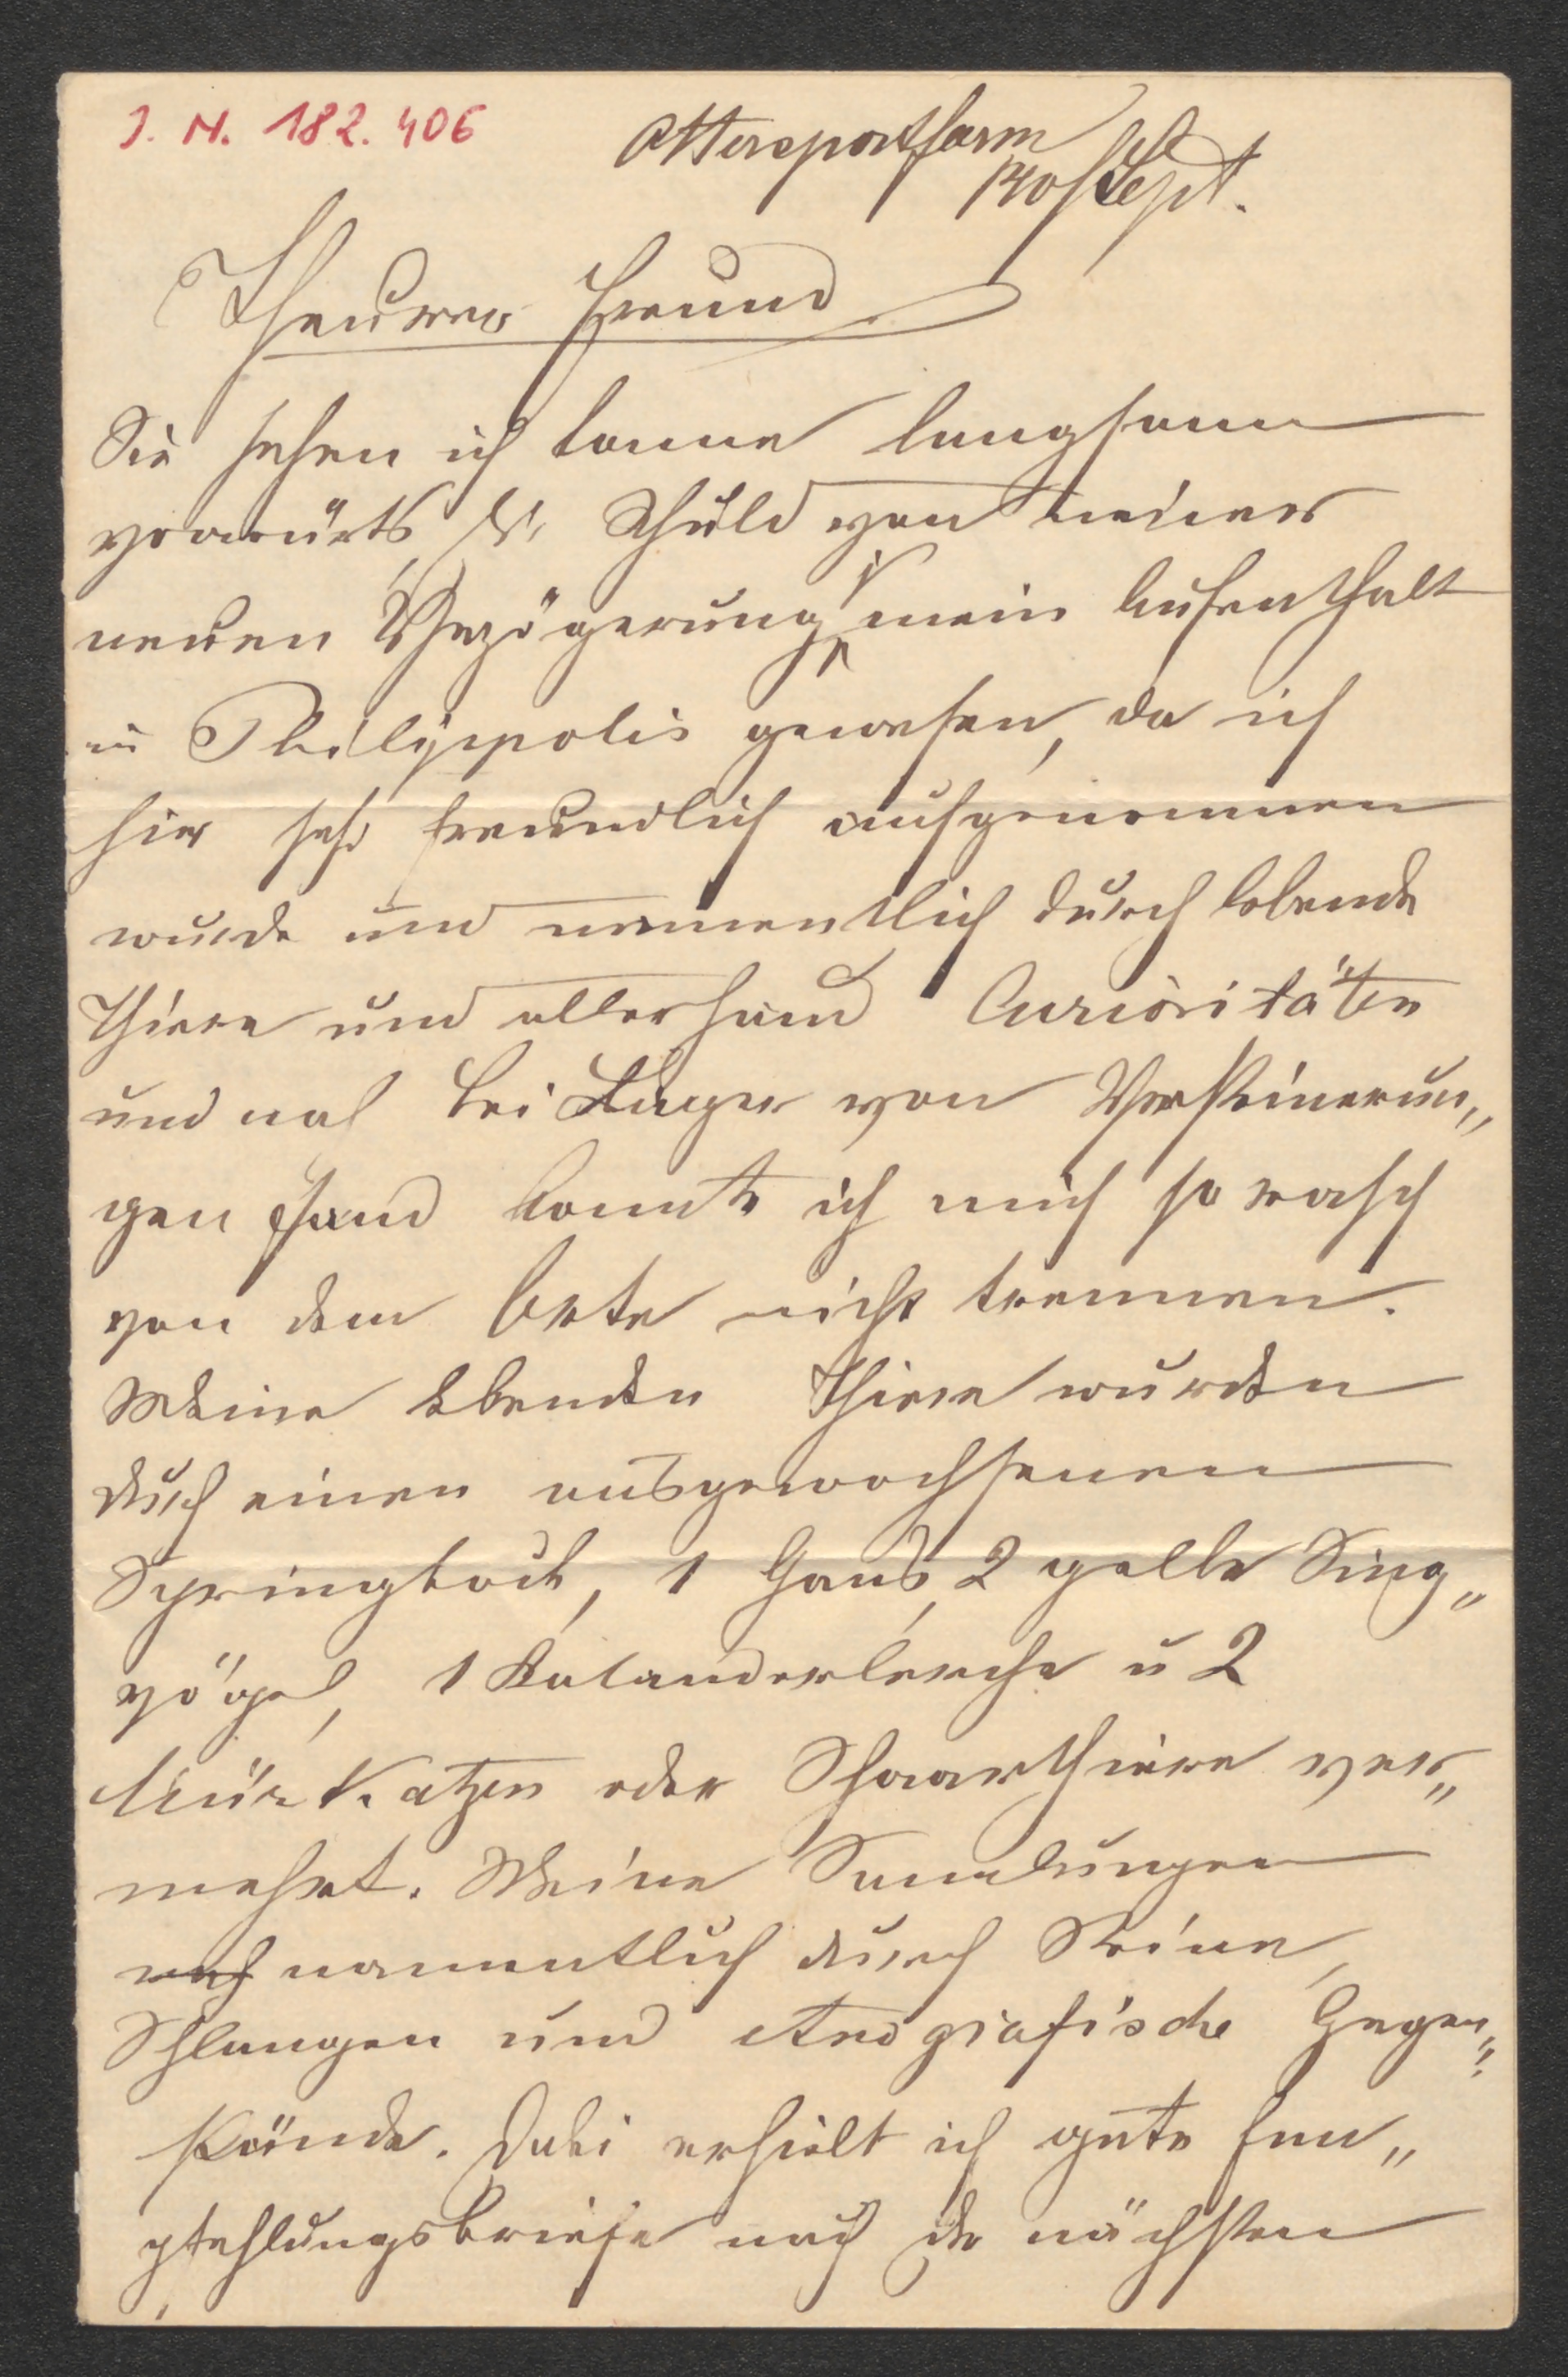 J. N. 182.406
Otterspoortfarm
Sept.
Theurer Freund
Sie sehen ich komme langsam
vorwärts, Schuld von meiner
neuen Verzögerung ist mein Aufenthalt
in Philippolis gewesen, da ich
hier sehr freundlich aufgenommen
wurde und namentlich durch lebende
Thiere und allerhand Curiositäten
und bei Lager von Versteinerun„
gen fand konnte ich mich so rasch
von dem Orte nicht trennen.
Meine lebenden Thiere wurden
durch einen ausgewachsenen
Springbock, 1 Gans, 2 gelbe Sing„
vögel, 1 Kalanderlerche u 2
Katzen oder Schaarthiere ver„
mehrt. Meine Sammlungen
namentlich durch Steine,
Schlangen und etnografische Gegen„
stände. Dabei erhielt ich gute Em„
pfehlungsbriefe nach der nächsten